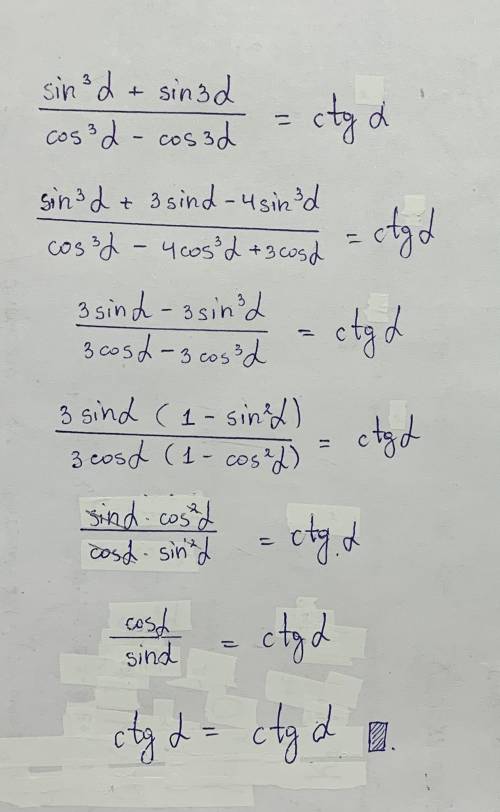 sin³α + sin3α / cos³α - cos3α = ctg α
sin³α + 3sinα - 4sin³α / cos³α - 4cos³α + 3cosα = ctgα
3sinα - 3sin³α / 3cosα - 3cos³α = ctgα
3sinα (1 - sin²α) / 3cosα (1 - cos²α) = ctgα
sinα · cos²α / cosα · sin²α = ctg α
cosα / sinα = ctgα
ctg α = ctg α